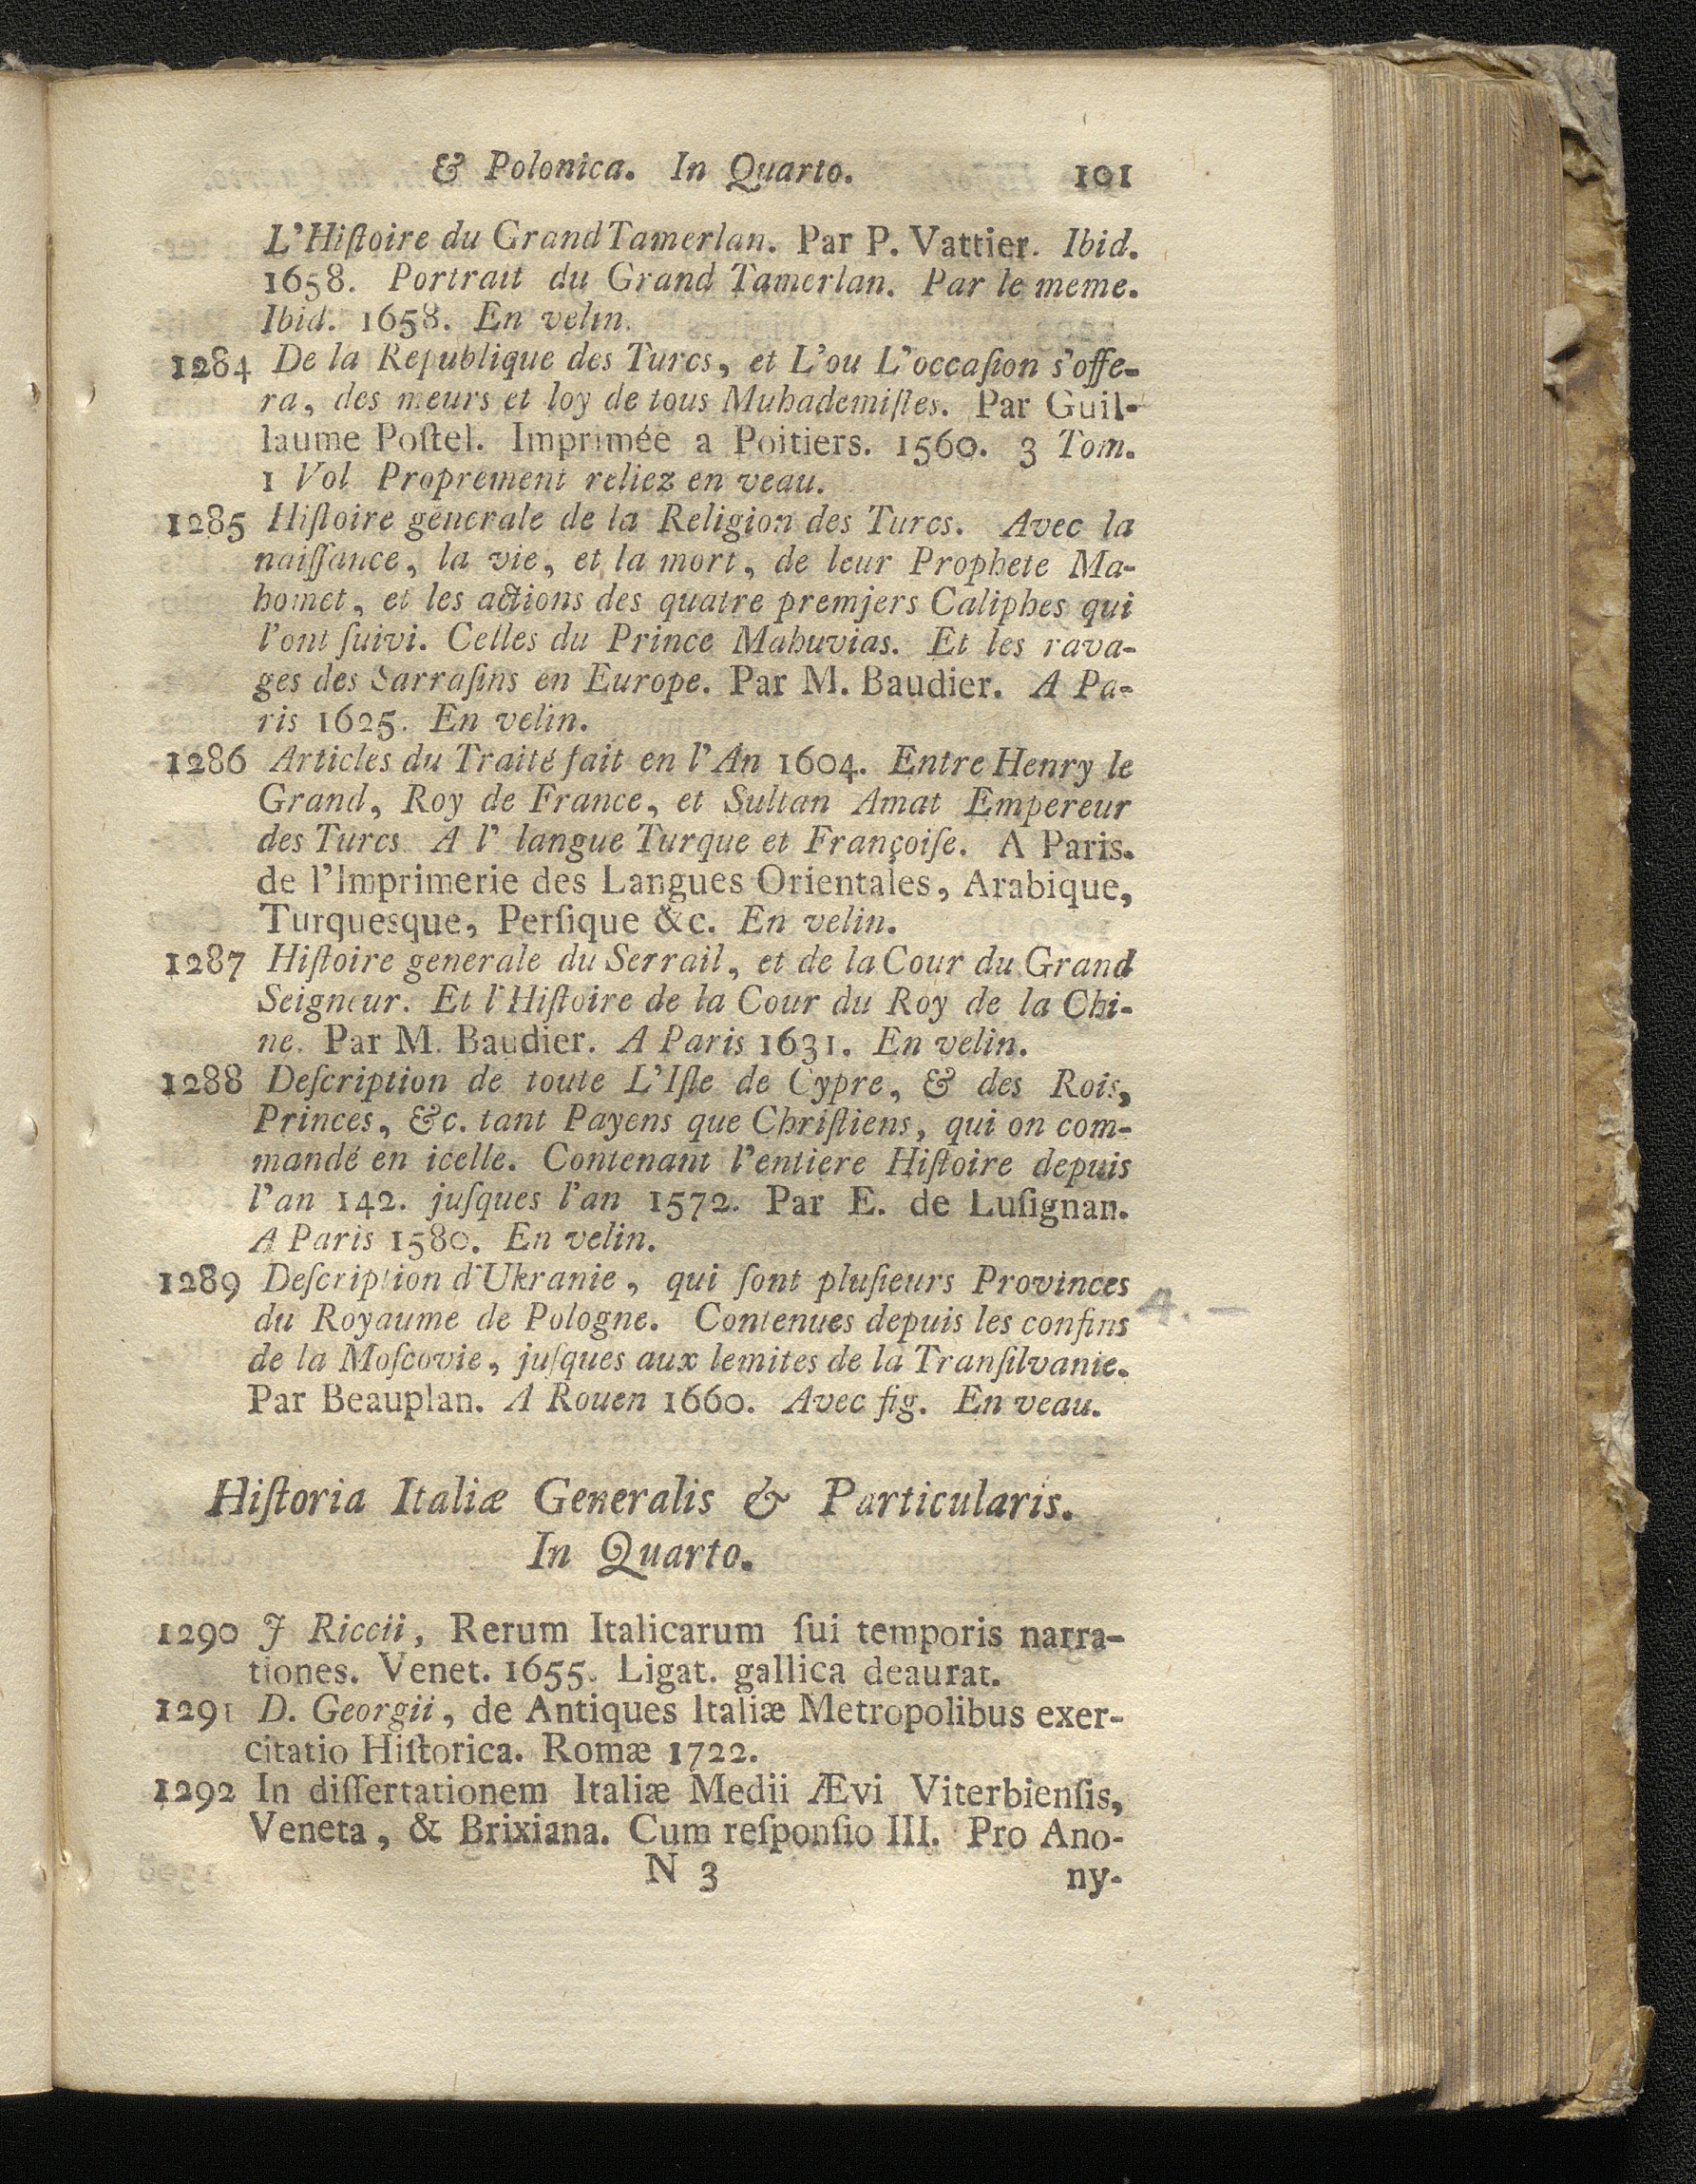 & Polonica. In Quarto. 101
L'Hiſtoire du Grand Tamerlan. Par P. Vattier. Ibid.
1658. Portrait du Grand Tamerlan. Par le meme.
Ibid. 1658. En velin.
1284 De la Republique des Turcs, et L'ou L'occaſion s'offe-
ra, des meurs et loy de tous Muhademiſtes. Par Guil-
laume Poſtel. Imprimée a Poitiers. 1560. 3 Tom.
1 Vol Proprement reliez en veau.
1285 Hiſtoire génerale de la Religion des Turcs. Avec la
naiſſance, la vie, et la mort, de leur Prophete Ma-
homet, et les actions des quatre premjers Caliphes qui
l'ont ſuivi. Celles du Prince Mahuvias. Et les rava-
ges des Sarraſins en Europe. Par M. Baudier. A Pa-
ris 1625. En velin.
1286 Articles du Traité fait en l'An 1604. Entre Henry le
Grand, Roy de France, et Sultan Amat Empereur
des Turcs A l' langue Turque et Françoiſe. A Paris.
de l'Imprimerie des Langues Orientales, Arabique,
Turquesque, Perſique &c. En velin.
1287 Hiſtoire generale du Serrail, et de la Cour du Grand
Seigneur. Et l'Hiſtoire de la Cour du Roy de la Chi-
ne. Par M. Baudier. A Paris 1631. En velin.
1288 Deſcription de toute L'Iſle de Cypre, & des Rois,
Princes, &c. tant Payens que Chriſtiens, qui on com-
mandé en icelle. Contenant l'entiere Hiſtoire depuis
l'an 142. juſques l'an 1572. Par E. de Luſignan.
A Paris 1580. En velin.
1289 Deſcription d'Ukranie, qui ſont pluſieurs Provinces
du Royaume de Pologne. Contenues depuis les confins 4. —
de la Moſcovie, juſques aux lemites de la Tranſilvanie.
Par Beauplan. A Rouen 1660. Avec fig. En veau.
Hiſtoria Italiæ Generalis & Particularis.
In Quarto.
1290 J Riccii, Rerum Italicarum ſui temporis narra-
tiones. Venet. 1655. Ligat. gallica deaurat.
1291 D. Georgii, de Antiques Italiæ Metropolibus exer-
citatio Hiſtorica. Romæ 1722.
1292 In diſſertationem Italiæ Medii Ævi Viterbienſis,
Veneta, & Brixiana. Cum reſponſio III. Pro Ano-
N 3 ny-